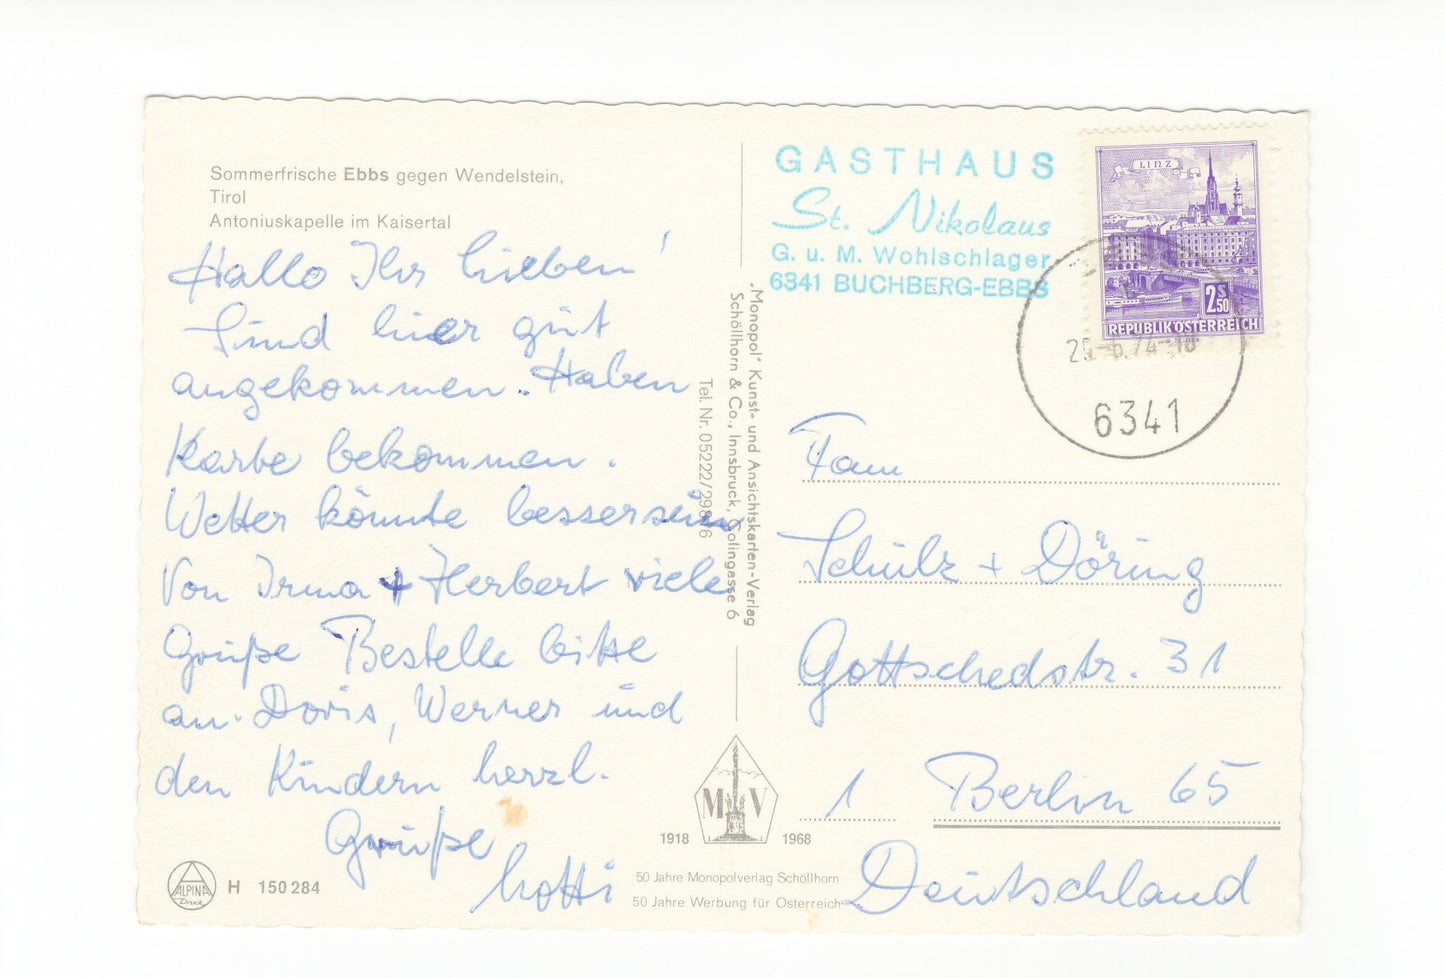 Sommerfrische Ebbs gegen Wendelstein,
Tirol
Antoniuskapelle im Kaisertal
Hallo Ihr Lieben!
Sind hier gut
angekommen. Haben
Karte bekommen.
Wetter könnte besser sein
Von Irma + Herbert viele
Grüße Bestelle bitte
an Doris, Werner und
den Kindern herzl.
Grüße
Lotti
ALPINA
Druck
H 150 284
„Monopol" Kunst- und Ansichtskarten-Verlag
Schöllhorn & Co., Innsbruck, Colingasse 6
Tel. Nr. 05222/29836
M V
1918 1968
50 Jahre Monopolverlag Schöllhorn
50 Jahre Werbung für Österreich
GASTHAUS
St. Nikolaus
G. u. M. Wohlschlager
6341 BUCHBERG-EBBS
LINZ
2 S 50
REPUBLIK ÖSTERREICH
6341
Fam
Schulz + Döring
Gottschedstr. 31
1 Berlin 65
Deutschland